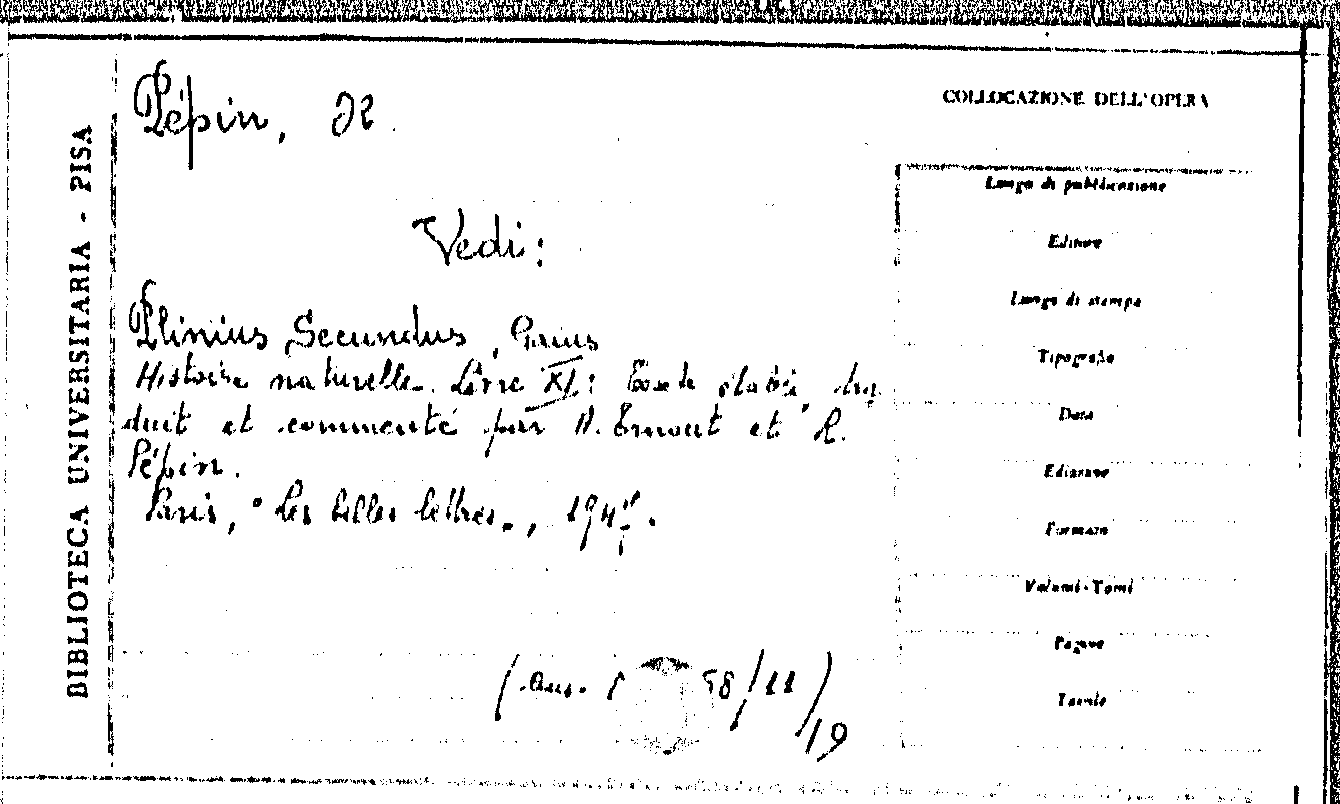 BIBLIOTECA UNIVERSITARIA - PISA
Pépin, R.
Vedi:
Plinius Secundus, Gaius
Histoire naturelle. Livre XI: Texte établi, tra
duit et commenté par A. Ernout et R.
Pépin.
Paris, "Les belles lettres", 1947.
58/11
/19
COLLOCAZIONE DELL'OPERA
Luogo di pubblicazione
Editore
Luogo di stampa
Tipografo
Data
Edizione
Formato
Volumi-Tomi
Pagine
Tavole